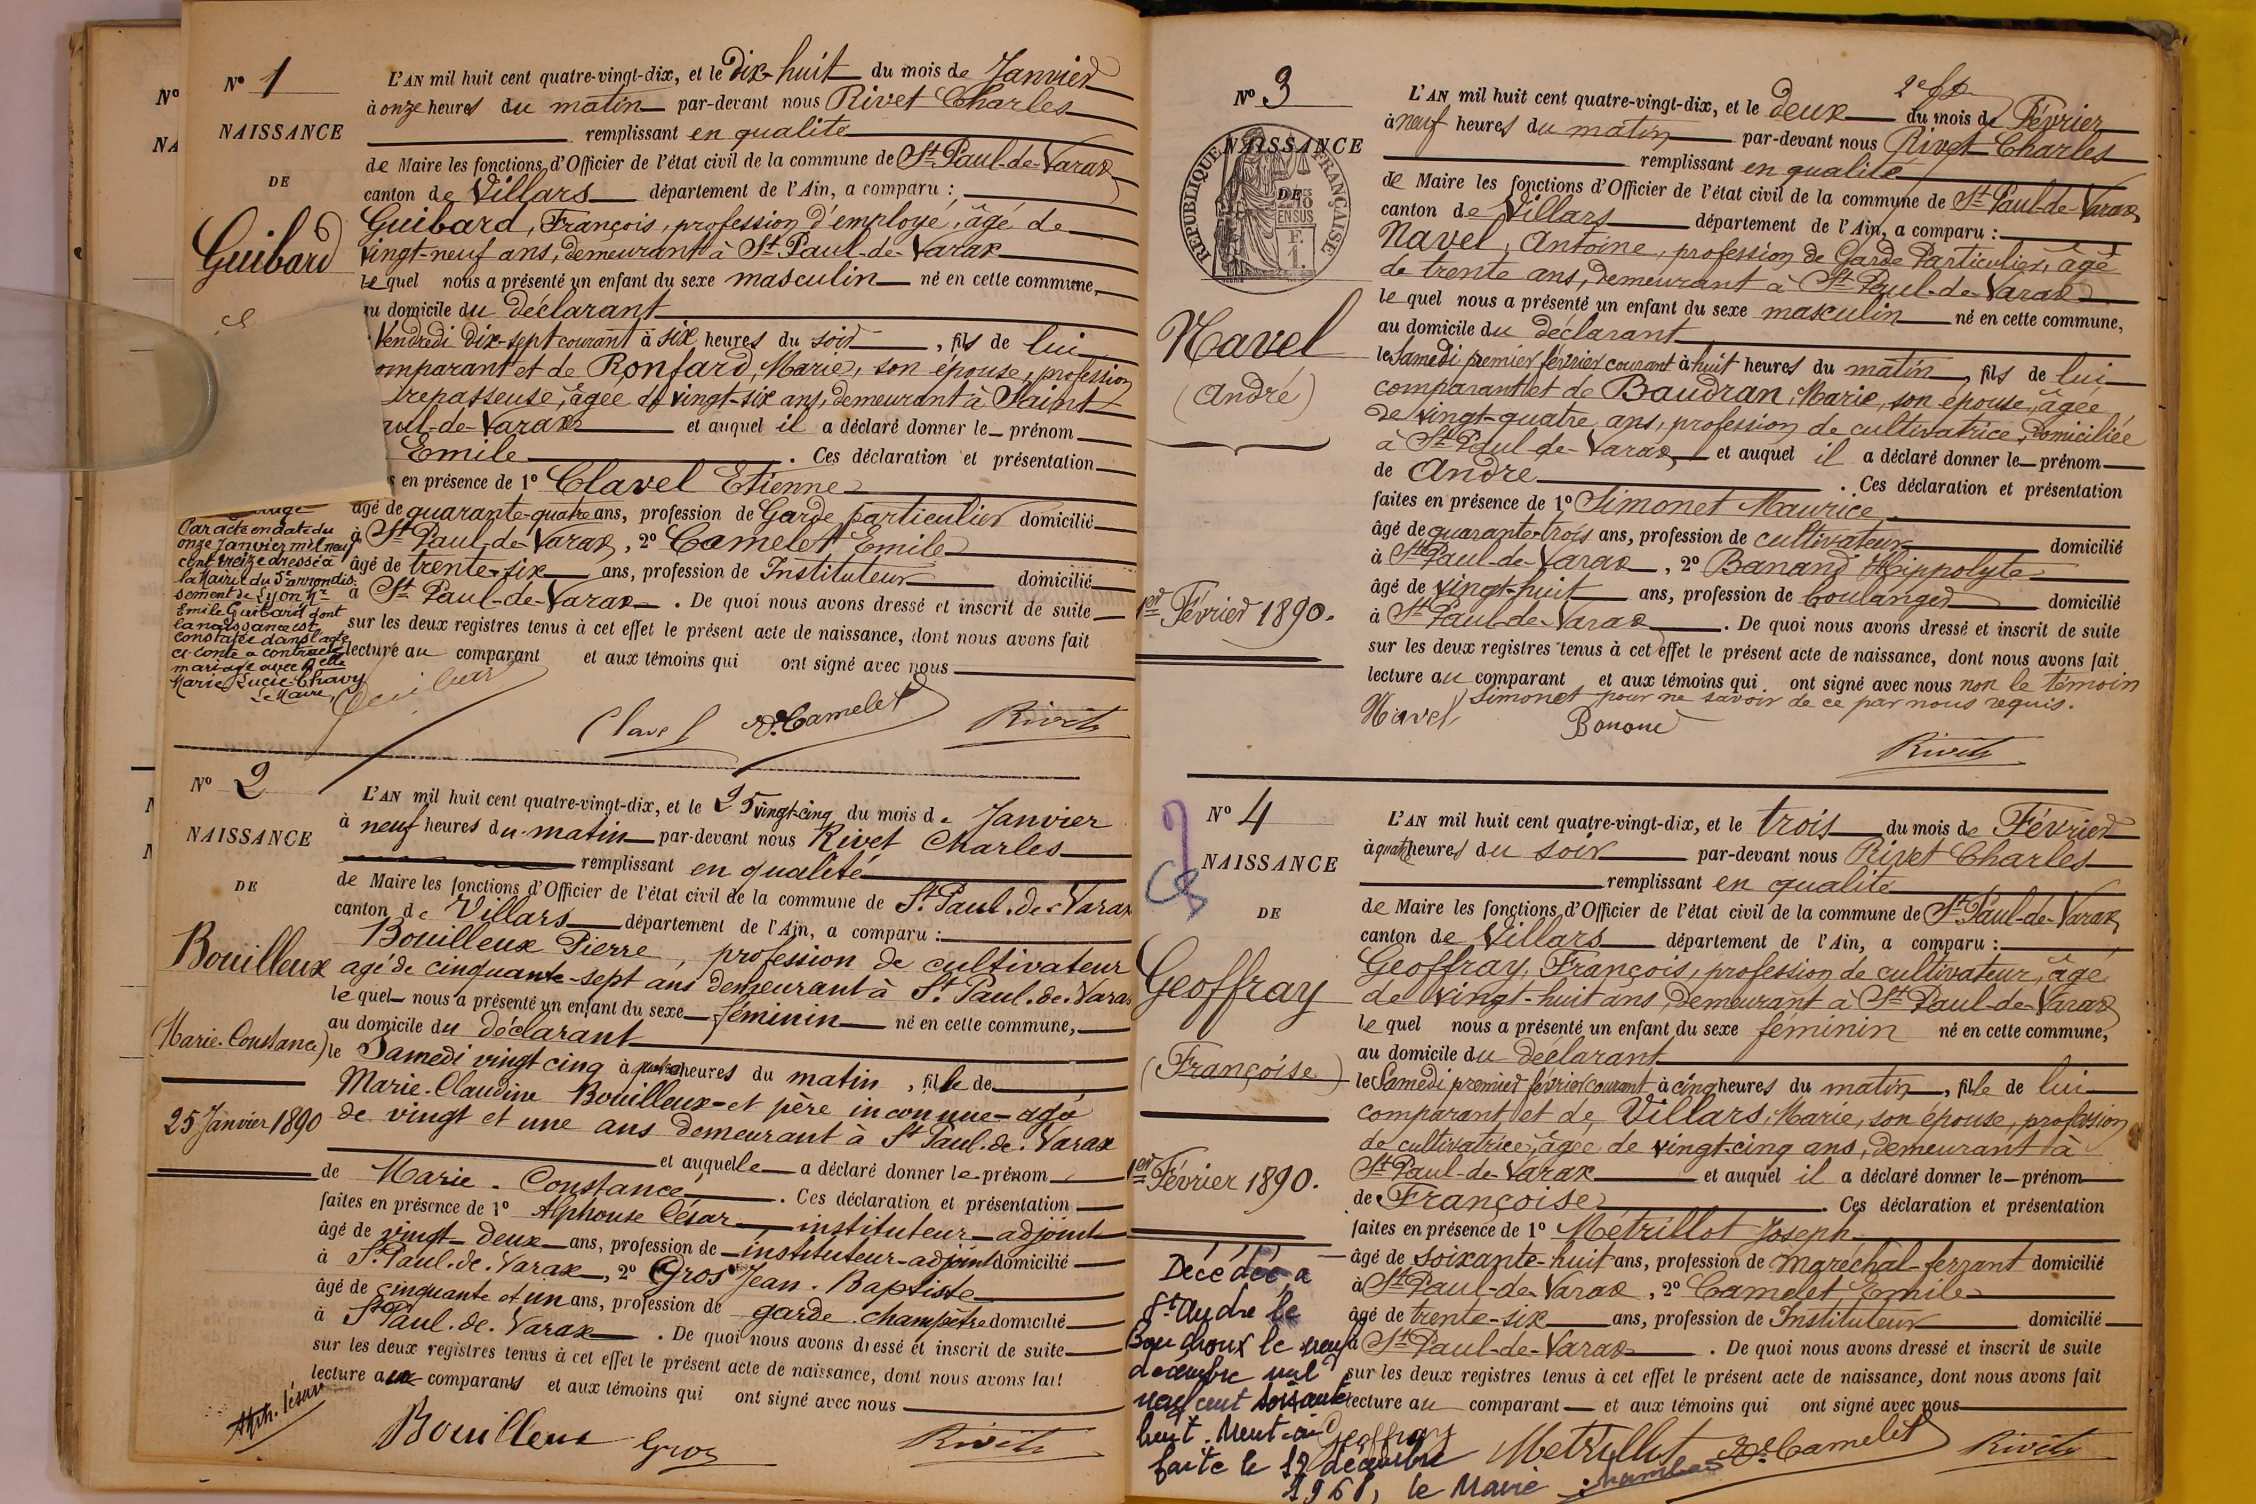 N° 1
NAISSANCE
DE
Guibard
L'AN mil huit cent quatre-vingt-dix, et le dix-huit du mois de Janvier
à onze heures du matin par-devant nous Rivet Charles
remplissant en qualité
de Maire les fonctions d'Officier de l'état civil de la commune de St Paul-de-Varax
canton de Villars département de l'Ain, a comparu :
Guibard, François, profession d'employé, âgé de
vingt-neuf ans, demeurant à St Paul-de-Varax
le quel nous a présenté un enfant du sexe masculin né en cette commune,
au domicile du déclarant
Vendredi dix-sept courant à six heures du soir, fils de lui
omparant et de Ronfard, Marie, son épouse, profession
repasseuse, âgée de vingt-six ans, demeurant à Saint
aul-de-Varax et auquel il a déclaré donner le prénom
Emile. Ces déclaration et présentation
s en présence de 1° Clavel Etienne
âgé de quarante-quatre ans, profession de Garde particulier domicilié
à St Paul-de-Varax, 2° Camelet Emile
âgé de trente-six ans, profession de Instituteur domicilié
à St Paul-de-Varax. De quoi nous avons dressé et inscrit de suite
sur les deux registres tenus à cet effet le présent acte de naissance, dont nous avons fait
lecture au comparant et aux témoins qui ont signé avec nous
Par acte en date du
onze Janvier mil neuf
cent treize dressé à
la Mairie du 5e arrondis-
sement de Lyon Mr
Emile Guibard dont
la naissance est
constatée dans l'acte
ci-contre a contracté
mariage avec Delle
Marie Lucie Chavy
Le Maire,
Guibard
Clavel E. Camelet Rivet
N° 2
NAISSANCE
DE
Bouilleux
(Marie-Constance)
25 Janvier 1890
L'AN mil huit cent quatre-vingt-dix, et le 25 vingt-cinq du mois de Janvier
à neuf heures du matin par-devant nous Rivet Charles
remplissant en qualité
de Maire les fonctions d'Officier de l'état civil de la commune de St. Paul-de-Varax
canton de Villars département de l'Ain, a comparu :
Bouilleux Pierre, profession de cultivateur
agé de cinquante-sept ans demeurant à St. Paul-de-Varax
le quel nous a présenté un enfant du sexe féminin né en cette commune,
au domicile du déclarant
le Samedi vingt cinq à quatre heures du matin, fille de
Marie-Claudine Bouilleux et père inconnue agé
de vingt et une ans demeurant à St Paul-de-Varax
et auquelle a déclaré donner le prénom
de Marie-Constance. Ces déclaration et présentation
faites en présence de 1° Alphonse César instituteur-adjoint
âgé de vingt-deux ans, profession de instituteur-adjoint domicilié
à St. Paul-de-Varax, 2° Gros Jean-Baptiste
âgé de cinquante et un ans, profession de garde champêtre domicilié
à St Paul-de-Varax. De quoi nous avons dressé et inscrit de suite
sur les deux registres tenus à cet effet le présent acte de naissance, dont nous avons fait
lecture aux comparants et aux témoins qui ont signé avec nous
Alph. César
Bouilleux Gros Rivet
N° 3
NAISSANCE
DE
RÉPUBLIQUE FRANÇAISE
EN SUS
Navel
(André)
1er Février 1890.
L'AN mil huit cent quatre-vingt-dix, et le deux du mois de Février
à neuf heures du matin par-devant nous Rivet Charles
remplissant en qualité
de Maire les fonctions d'Officier de l'état civil de la commune de St Paul-de-Varax
canton de Villars département de l'Ain, a comparu :
Navel, Antoine, profession de Garde Particulier, âgé
de trente ans, demeurant à St Paul-de-Varax
le quel nous a présenté un enfant du sexe masculin né en cette commune,
au domicile du déclarant
le Samedi premier février courant à huit heures du matin, fils de lui
comparant et de Baudran, Marie, son épouse, âgée
de vingt-quatre ans, profession de cultivatrice, domiciliée
à St Paul-de-Varax et auquel il a déclaré donner le prénom
de André. Ces déclaration et présentation
faites en présence de 1° Simonet Maurice
âgé de quarante-trois ans, profession de cultivateur domicilié
à St Paul-de-Varax, 2° Banand Hippolyte
âgé de vingt-huit ans, profession de boulanger domicilié
à St Paul-de-Varax. De quoi nous avons dressé et inscrit de suite
sur les deux registres tenus à cet effet le présent acte de naissance, dont nous avons fait
lecture au comparant et aux témoins qui ont signé avec nous non le témoin
Simonet pour ne savoir de ce par nous requis.
Navel Banand
Rivet
N° 4
NAISSANCE
DE
Geoffray
(Françoise)
1er Février 1890.
L'AN mil huit cent quatre-vingt-dix, et le trois du mois de Février
à quatre heures du soir par-devant nous Rivet Charles
remplissant en qualité
de Maire les fonctions d'Officier de l'état civil de la commune de St Paul-de-Varax
canton de Villars département de l'Ain, a comparu :
Geoffray, François, profession de cultivateur, âgé
de vingt-huit ans, demeurant à St Paul-de-Varax
le quel nous a présenté un enfant du sexe féminin né en cette commune,
au domicile du déclarant
le Samedi premier février courant à cinq heures du matin, fille de lui
comparant et de Villars, Marie, son épouse, profession
de cultivatrice, âgée de vingt-cinq ans, demeurant à
St Paul-de-Varax et auquel il a déclaré donner le prénom
de Françoise. Ces déclaration et présentation
faites en présence de 1° Métrillot Joseph
âgé de soixante-huit ans, profession de maréchal-ferrant domicilié
à St Paul-de-Varax, 2° Camelet, Emile
âgé de trente-six ans, profession de Instituteur domicilié
à St Paul-de-Varax. De quoi nous avons dressé et inscrit de suite
sur les deux registres tenus à cet effet le présent acte de naissance, dont nous avons fait
lecture au comparant et aux témoins qui ont signé avec nous
Décédée à
St André le
Bouchoux le neuf
décembre mil
neuf cent soixante
huit. Mention
faite le 12 décembre
1968, le Maire
Geoffray Métrillot E. Camelet Rivet